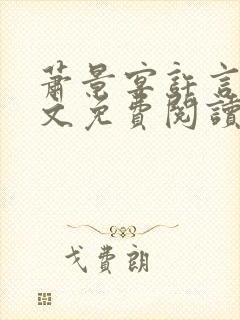 萧景宴許言
文免費閱讀
戈費朗